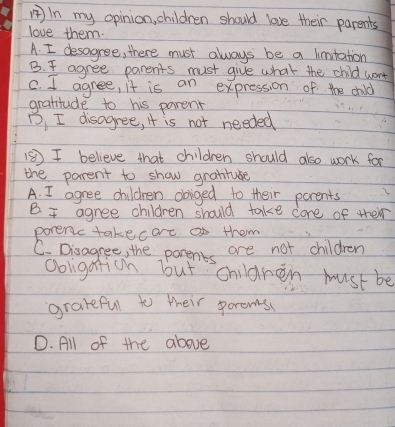 17) In my opinion, children should love their parents
love them.
A. I desagree, there must always be a limitation
B. I agree parents must give what the child want
C. I agree, it is an expression of the child
gratitude to his parent
D, I disagree, it is not needed
18) I believe that children should also work for
the parent to show gratitude
A. I agree children obliged to their parents
B. I agree children should take care of their
parenc take care as them
C- Disagree, the parents are not children
Obligation but children must be
grateful to their parents,
D. All of the above